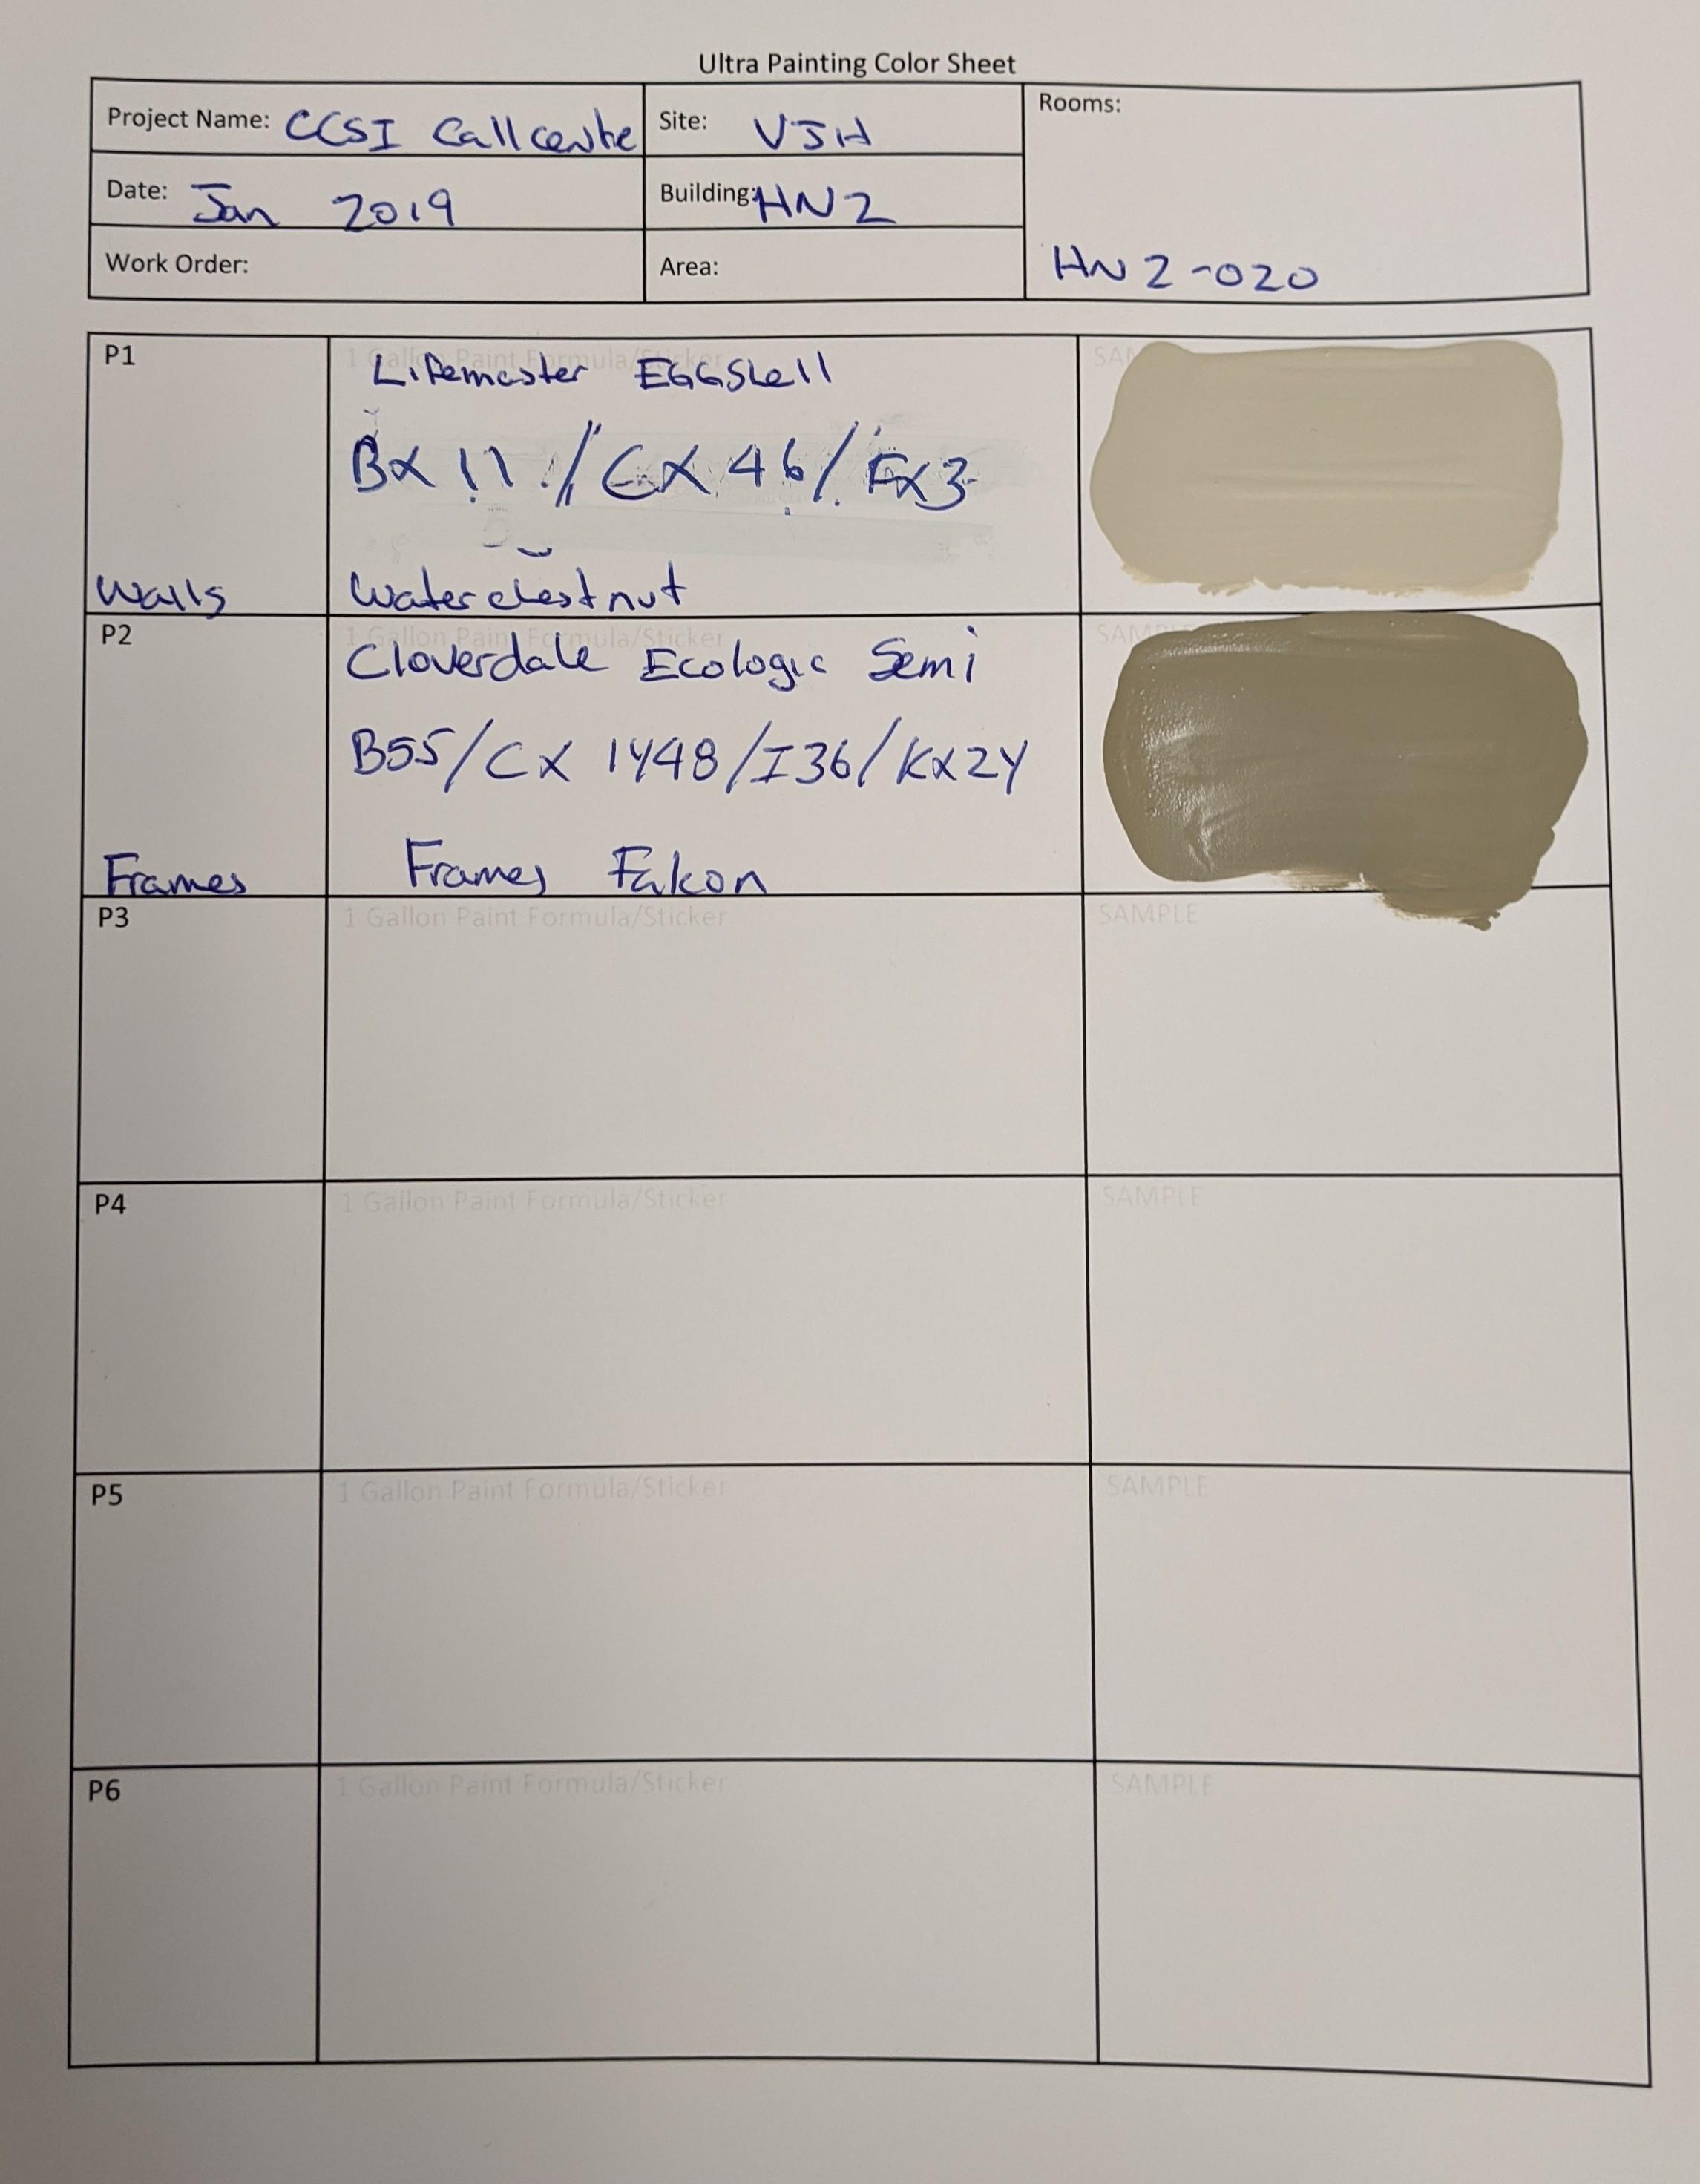 Ultra Painting Color Sheet
Project Name: CCSI Callcentre
Site: VJH
Rooms:
Date: Jan 2019
Building: HN2
Work Order:
Area:
HN2-020
P1
1 Gallon Paint Formula/Sticker
Lifemaster EGGShell
BX 11 // CX 46 / FX3
Walls
Waterchestnut
P2
1 Gallon Paint Formula/Sticker
Cloverdale Ecologic Semi
B55/CX 1Y48/I36/KX2Y
Frames
Frames Falcon
P3
1 Gallon Paint Formula/Sticker
SAMPLE
P4
1 Gallon Paint Formula/Sticker
SAMPLE
P5
1 Gallon Paint Formula/Sticker
SAMPLE
P6
1 Gallon Paint Formula/Sticker
SAMPLE